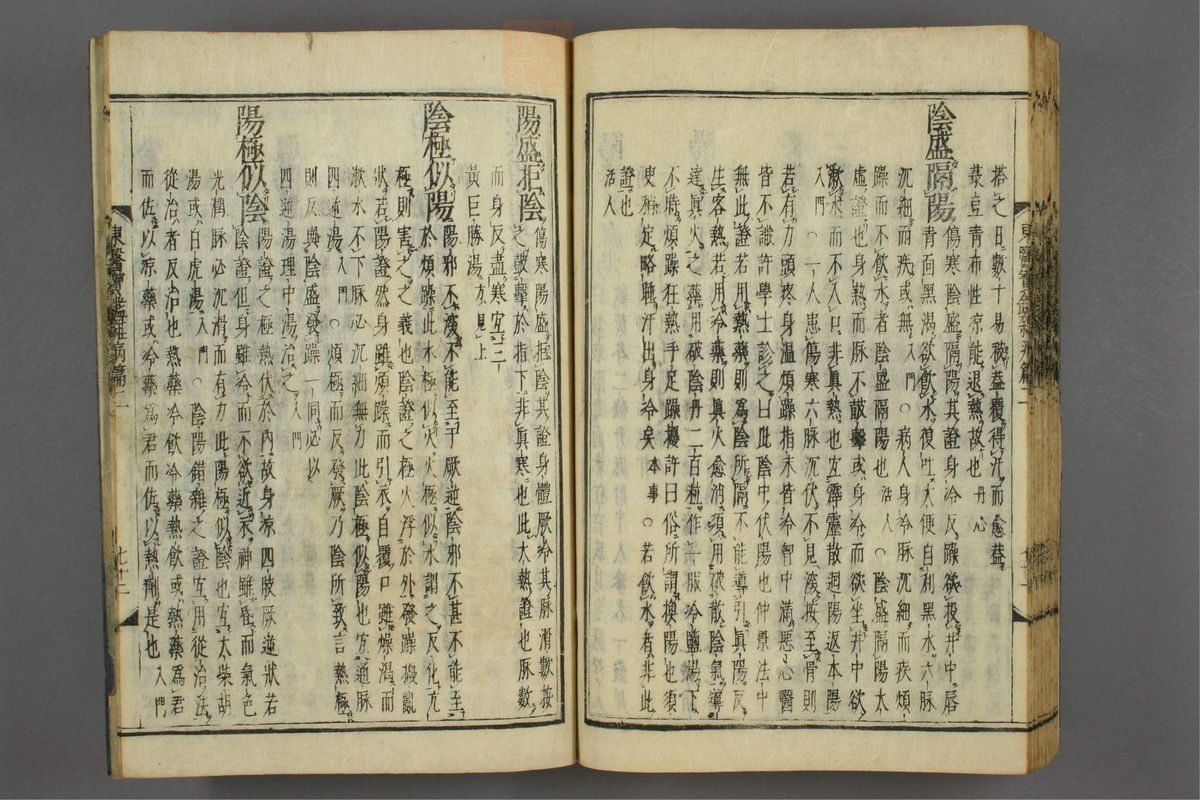 搭之日數十易被蓋覆得汗而愈蓋
菉豆靑布性凉能退熱故也丹心
陰盛隔陽
傷寒陰盛隔陽其證身冷反躁欲投井中唇
靑面黑渴欲飮水復吐大便自利黑水六脉
沉細而疾或無入門○病人身冷脉沉細而疾煩
躁而不飮水者陰盛隔陽也活人○陰盛隔陽大
虛證也身熱而脉不鼓擊或身冷而欲坐井中欲
漱水而不入口非眞熱也宜霹靂散廻陽返本湯
入門○一人患傷寒六脉沉伏不見深按至骨則
若有力頭疼身温煩躁指末皆冷胷中滿惡心醫
皆不識許學士診之曰此陰中伏陽也仲景法中
無此證若用熱藥則爲陰所隔不能導引眞陽反
生客熱若用冷藥則眞火愈消須用破散陰氣導
達眞火之藥用破陰丹二百粒作一服冷鹽湯下
不時煩躁狂熱手足躁擾許曰俗所謂換陽也須
臾稍定略睡汗出身冷矣本事○若飮水者非此
證也活人
陽盛拒陰
傷寒陽盛拒陰其證身體厥冷其脉滑數按
之鼓擊於指下非眞寒也此大熱證也脉數
而身反盡寒宜三
黃巨勝湯方見上
陰極似陽
陽邪不深不能至于厥逆陰邪不甚不能至
於煩躁此水極似火火極似水謂之反化亢
極則害之之義也陰證之極火浮於外發躁擾亂
狀若陽證然身雖煩躁而引衣自覆口雖燥渴而
漱水不下脉必沉細無力此陰極似陽也宜通脉
四逆湯入門○煩極而反發厥乃陰所致言熱極
則反與陰盛發躁一同必以
四逆湯理中湯治之入門
陽極似陰
陽證之極熱伏於內故身凉四肢厥逆狀若
陰證但身雖冷而不欲近衣神雖昏而氣色
光潤脉必沉滑而有力此陽極似陰也宜大柴胡
湯或白虎湯入門○陰陽錯雜之證宜用從治法
從治者反治也熱藥冷飮冷藥熱飮或熱藥爲君
而佐以凉藥或冷藥爲君而佐以熱劑是也入門
東醫寶鑑雜病篇二
七十二